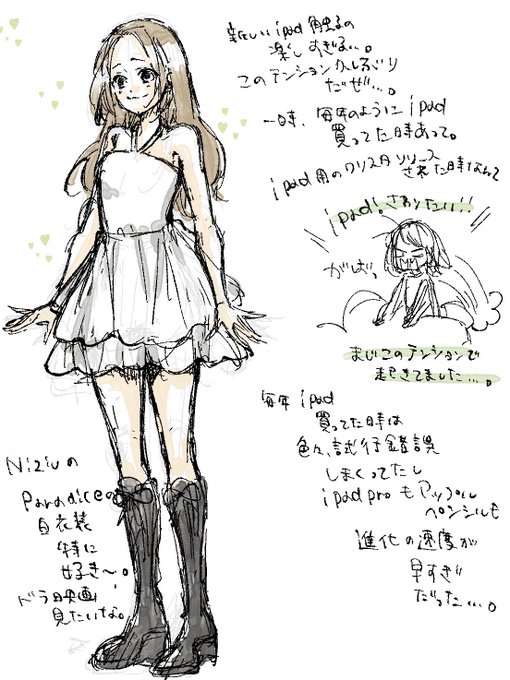 新しいipad触るの
楽しすぎる…。
このテンション久しぶり
だぜ…。
一時、毎年のようにipad
買ってた時あって。
ipad用のクリスタリリース
された時なんて
ipad!さわりたい!!
がばっ
まじこのテンションで
起きてました…。
毎年ipad
買ってた時は
色々、試行錯誤
しまくってたし
ipad proもアップル
ペンシルも
進化の速度が
早すぎ
だった…。
Niziuの
Paradiceの
白衣装
特に
好き〜。
ドラ映画
見たいな。